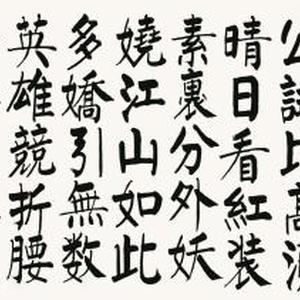 公試比高
晴日看紅装
素裹分外妖
嬈江山如此
多嬌引無数
英雄競折腰